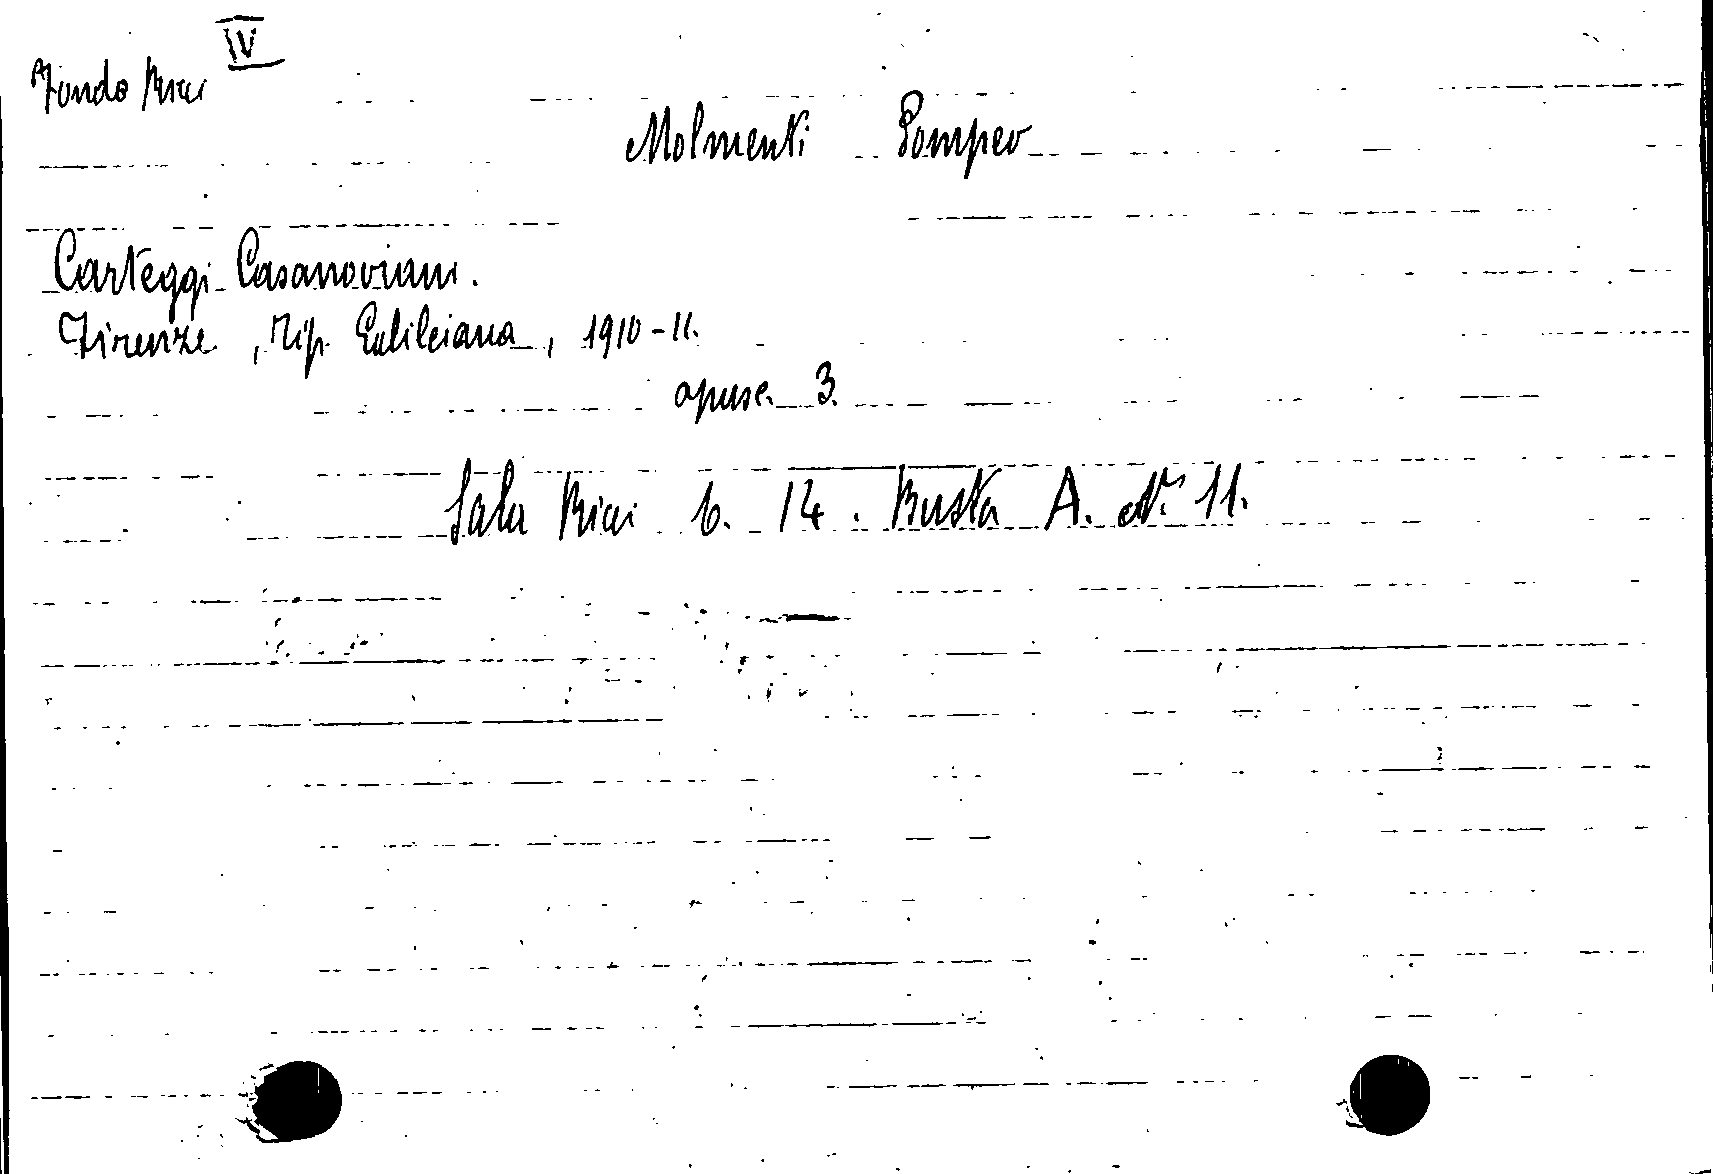 IV
Fondo Ricci
Molmenti Pompeo
Carteggi Casanoviani.
Firenze, Tip. Galileiana, 1910-11.
opusc. 3.
Sala Ricci 6. 14. Busta A. N° 11.